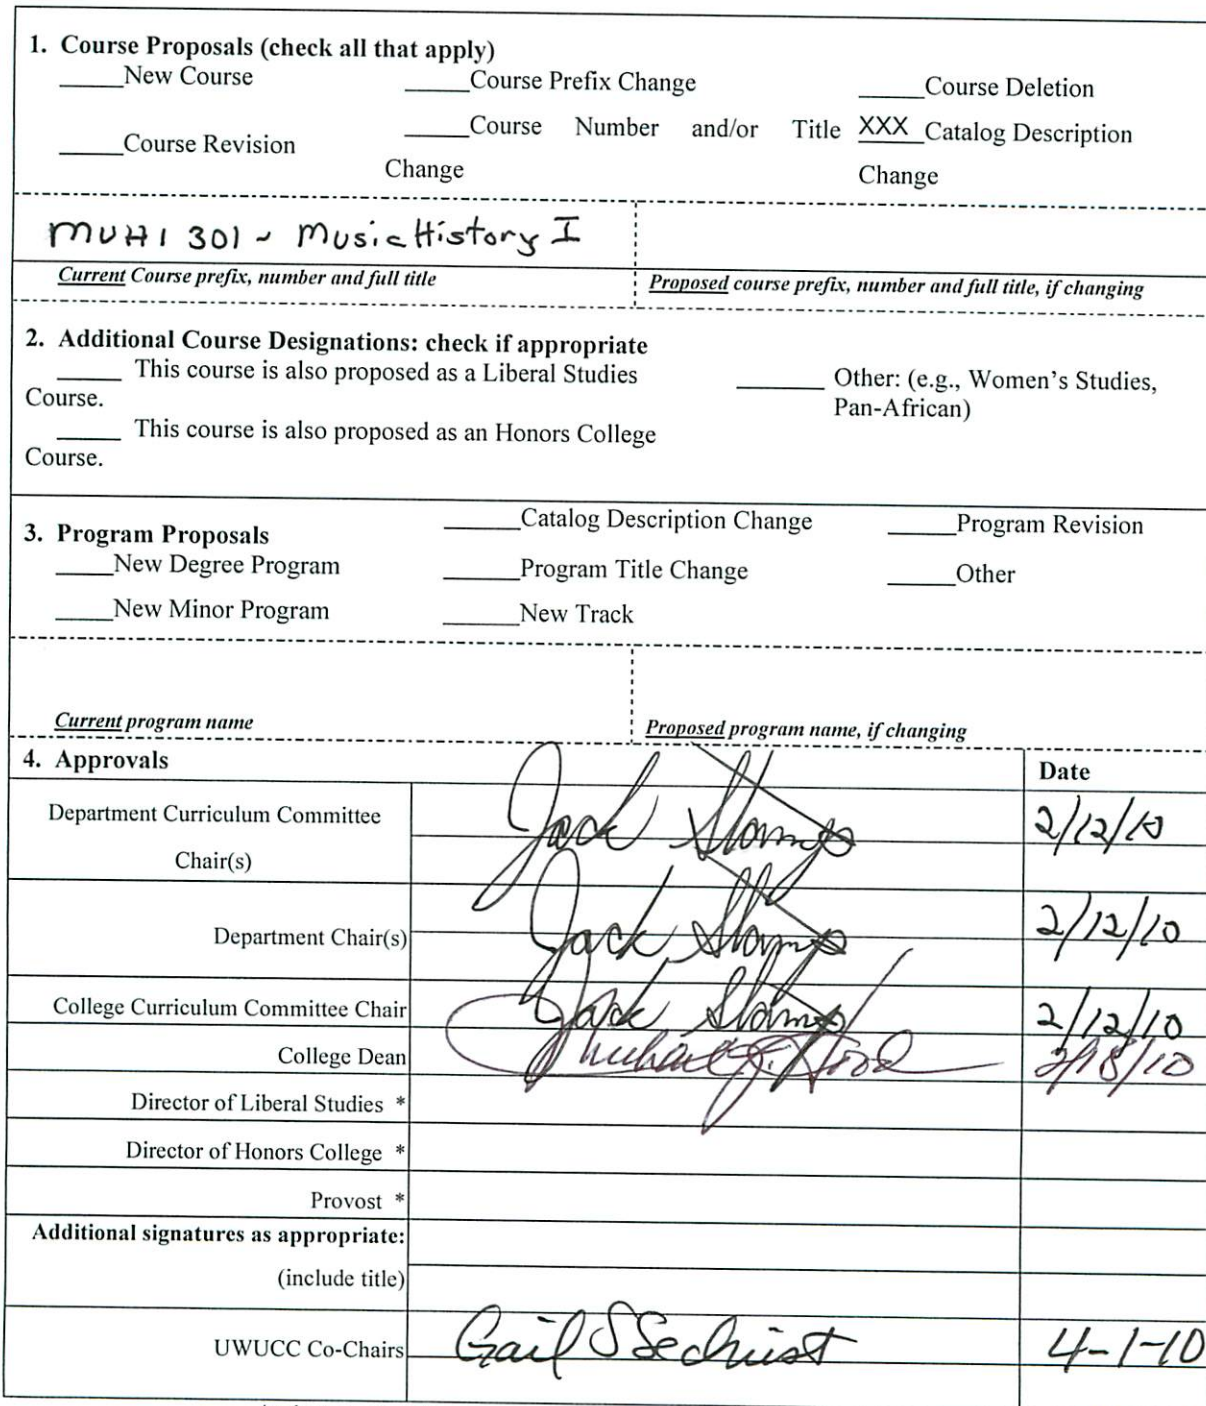 1. Course Proposals (check all that apply)
_____New Course _____Course Prefix Change _____Course Deletion
_____Course Revision _____Course Number and/or Title Change XXX_Catalog Description Change
MUHI 301 - Music History I
Current Course prefix, number and full title Proposed course prefix, number and full title, if changing
2. Additional Course Designations: check if appropriate
_____ This course is also proposed as a Liberal Studies Course.
_____ Other: (e.g., Women's Studies, Pan-African)
_____ This course is also proposed as an Honors College Course.
3. Program Proposals _____Catalog Description Change _____Program Revision
_____New Degree Program _____Program Title Change _____Other
_____New Minor Program _____New Track
Current program name Proposed program name, if changing
4. Approvals Date
Department Curriculum Committee Chair(s) Jack Stamp 2/12/10
Department Chair(s) Jack Stamp 2/12/10
College Curriculum Committee Chair Jack Stamp 2/12/10
College Dean Michael J. Hood 2/18/10
Director of Liberal Studies *
Director of Honors College *
Provost *
Additional signatures as appropriate:
(include title)
UWUCC Co-Chairs Gail S Sechrist 4-1-10